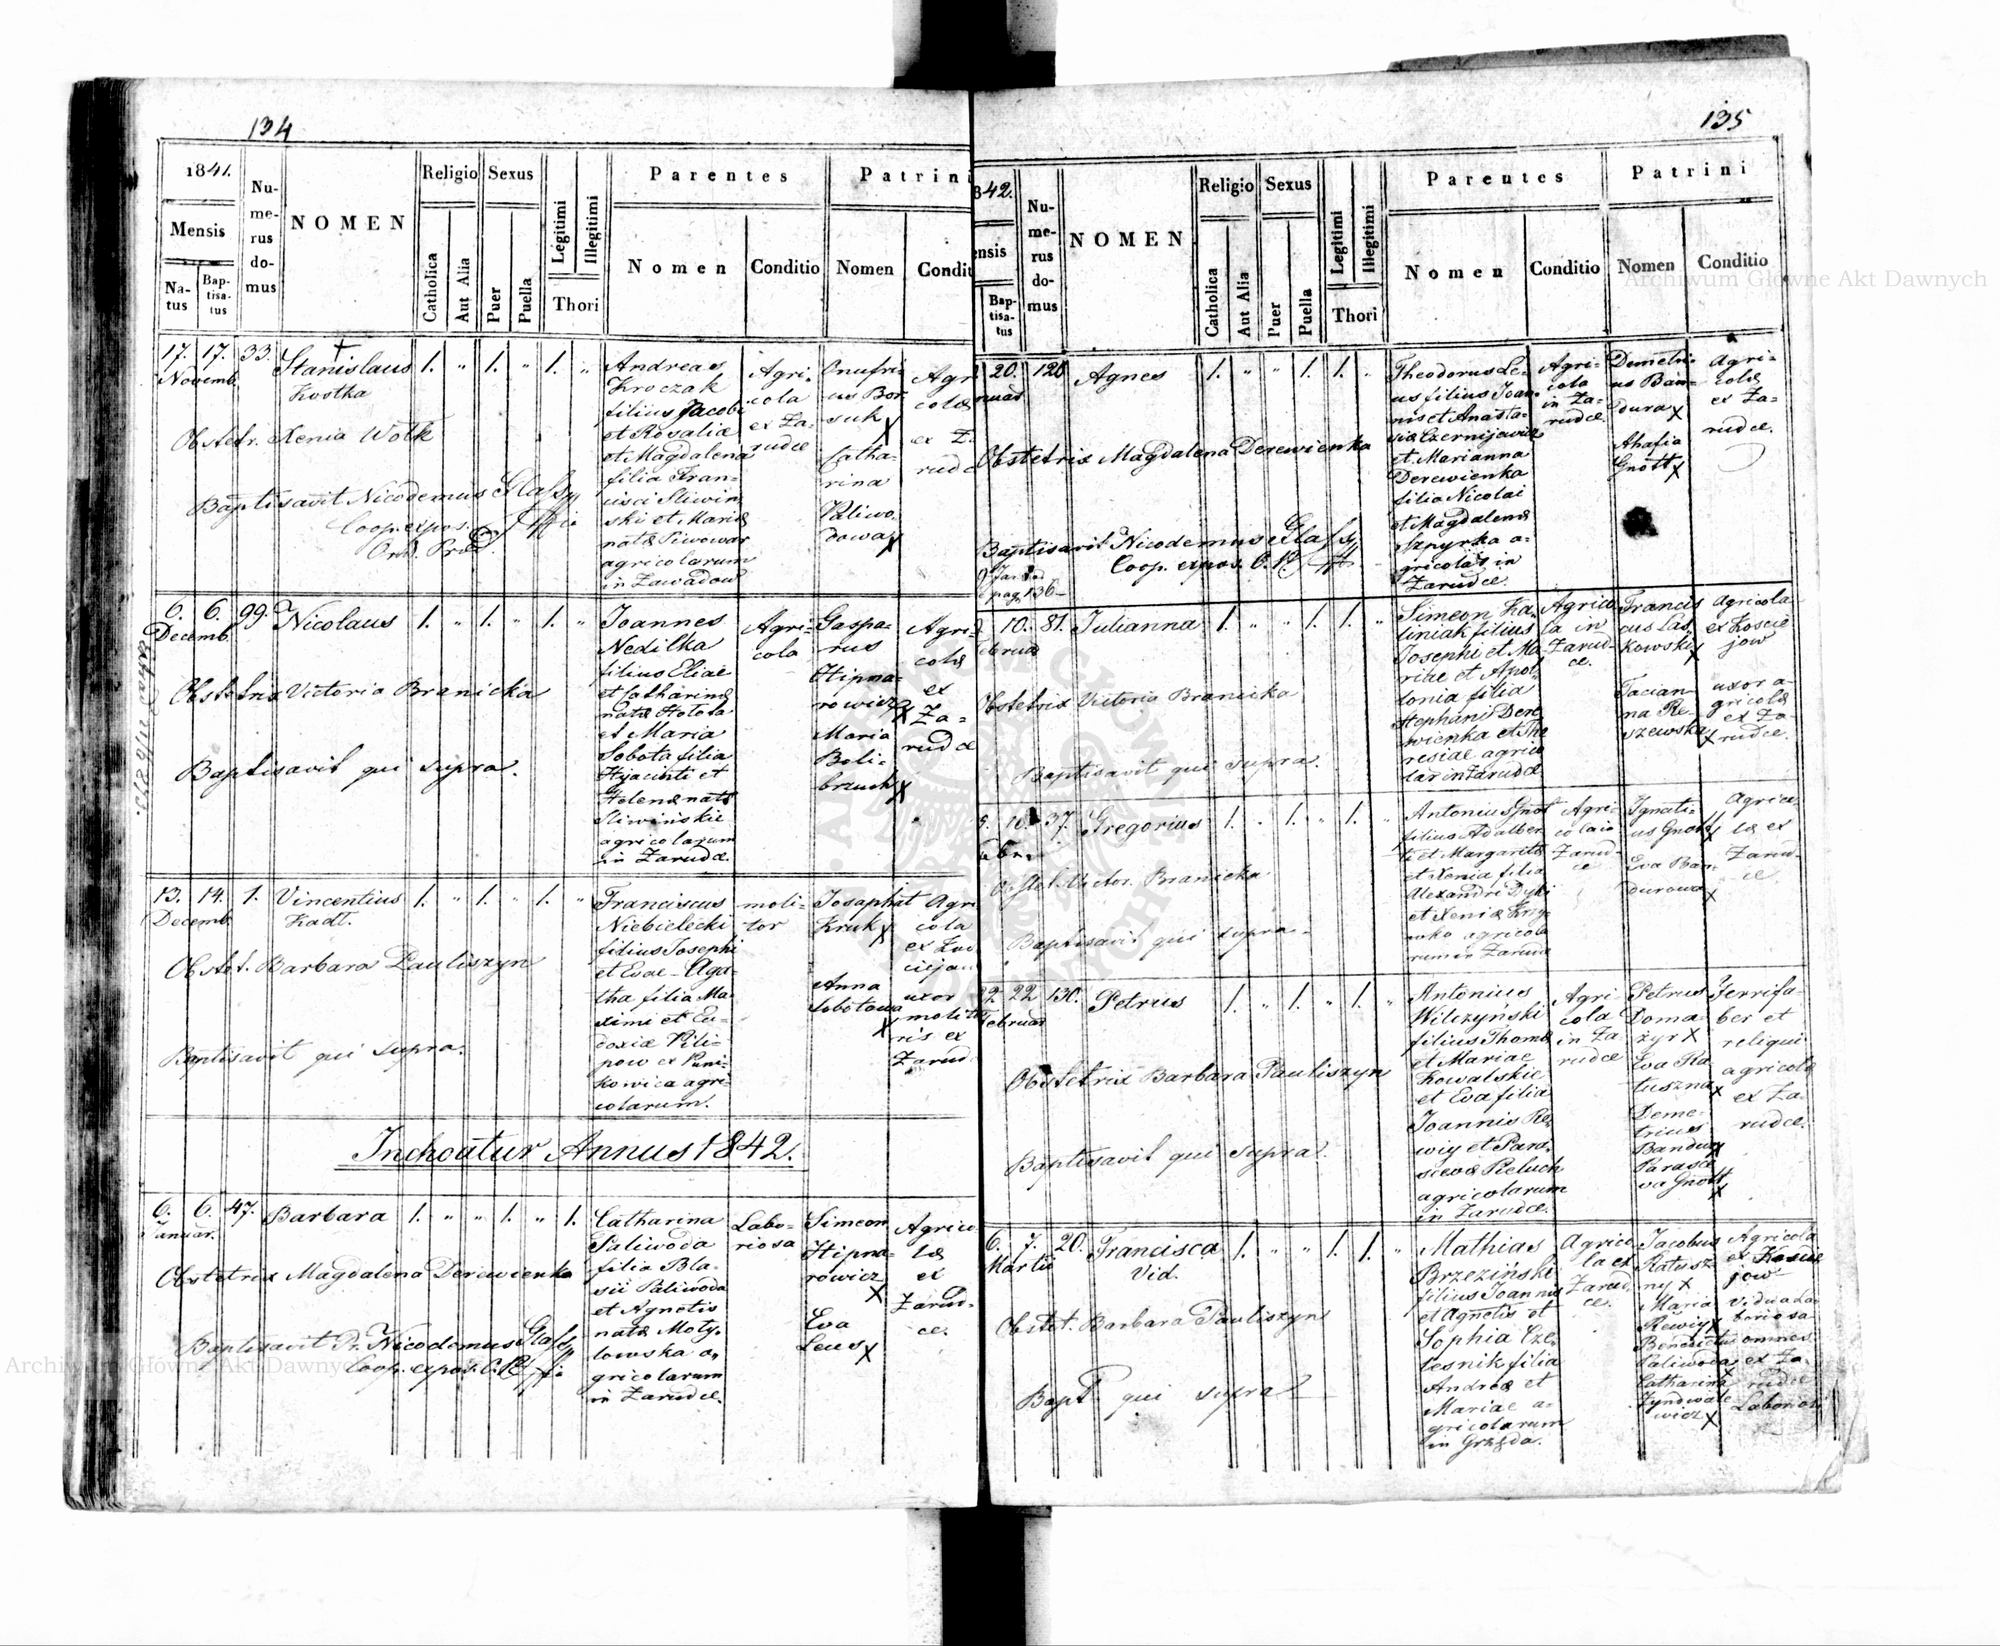 134
1841.
Mensis
Na-
tus
Bap-
tisa-
tus
Nu-
me-
rus
do-
mus
NOMEN
Religio
Catholica
Aut Alia
Sexus
Puer
Puella
Legitimi
Illegitimi
Thori
Parentes
Nomen
Conditio
Patrini
Nomen
Condit
17. 17. 33. Stanislaus 1. " 1. " 1. "
Novemb. Kostka
Obstetr. Xenia Wolk
Baptisavit Nicodemus
Coop. expos.
Ord. Pred.
Andreas
Kroczak
filius Jacobi
et Rosaliæ
et Magdalena
filia Fran-
cisci Sliwin
ski et Mariæ
natæ Piwowar
agricolarum
in Zawadow
Agri-
cola
ex Za-
rudce
Onufri-
us Bor
suk X
Catha-
rina
Paliwo-
dowa X
Agri
colæ
ex Z.
rudc
6. 6. 99. Nicolaus 1. " 1. " 1. "
Decemb.
Obstetrix Victoria Branicka
Baptisavit qui supra.
Joannes
Nedilka
filius Eliae
et Catharinæ
natæ Hotota
et Maria
Sobota filia
Hyacinti et
Helenæ natæ
Sliwińskie
agricolarum
in Zarudce.
Agri-
cola
Gaspa-
rus
Hipna-
rowicz X
Maria
Boli-
brzuch X
Agri-
colæ
ex
Za-
rudce
13. 14. 1. Vincentius 1. " 1. " 1. "
Decemb. Kadt.
Obstet. Barbara Pauliszyn
Baptisavit qui supra.
Franciscus
Niebielecki
filius Josephi
et Evae - Aga-
tha filia Ma-
ximi et Eu-
doxiæ Pili-
pow ex Puni-
kowica agri-
colarum.
moli-
tor
Josaphat
Kruk X
Anna
Sobotowa
X
Agri
cola
uxor
molito
ris ex
Zarud.
Inchoatur Annus 1842.
6. 6. 47. Barbara 1. " " 1. " 1.
Januar.
Obstetrix Magdalena Derewienka
Baptisavit Pr. Nicodemus
Coop. expos.
Catharina
Paliwoda
filia Bla-
sii Paliwoda
et Agnetis
natæ Moty-
lowska a-
gricolarum
in Zarudce.
Labo-
riosa
Simeon
Hipna-
rowicz
X
Eva
Leus X
Agrico
læ
ex
Zarud-
ce.
135
842.
ensis
Bap-
tisa-
tus
Nu-
me-
rus
do-
mus
NOMEN
Religio
Catholica
Aut Alia
Sexus
Puer
Puella
Legitimi
Illegitimi
Thori
Parentes
Nomen
Conditio
Patrini
Nomen
Conditio
20. 120 Agnes 1. " " 1. 1. "
Obstetrix Magdalena Derewienka
Baptisavit Nicodemus
Coop. expos.
pag. 136
Theodorus Le-
us filius Joan-
nis et Anasta-
siæ Czernijawice
et Marianna
Derewienka
filia Nicolai
et Magdalenæ
Szpyrka a-
gricolar in
Zarudce.
Agri-
cola
in Za-
rudce.
Demetri-
us Ban-
dura X
Ahafia
Gnott X
Agri-
colæ
ex Za-
rudce.
10. 81. Julianna 1. " " 1. 1. "
Obstetrix Victoria Branicka
Baptisavit qui supra.
Simeon Ka-
liniak filius
Josephi et Ma-
riae et Apol-
lonia filia
Stephani Dere
wienka et The
resiae agrico
lar in Zarudce
Agrico
la in
Zarud-
ce.
Francis
cus Las-
kowski X
Tacian-
na Re-
szewska X
Agricola
ex Koscie
jow
uxor a-
gricolæ
ex Za-
rudce.
10. 37. Gregorius 1. " 1. " 1. "
Obstet. Victor. Branicka
Baptisavit qui supra.
Antonius Gnot
filius Adalber
ti et Margaretæ
et Xenia filia
Alexandri Dyki
et Xeniæ
agricola
rum in Zarud
Agri-
cola in
Zarud-
ce
Ignati-
us Gnott X
Eva Ban-
durowa X
Agrico
læ ex
Zarud-
ce.
22. 22. 130. Petrus 1. " 1. " 1. "
Februar
Obstetrix Barbara Pauliszyn
Baptisavit qui supra.
Antonius
Wilczyński
filius Thomæ
et Mariae
Kowalskie
et Eva filia
Joannis Re-
wig et Para-
scevæ Pieluch
agricolarum
in Zarudce.
Agri-
cola
in Za
rudce
Petrus
Doma-
zyr X
Eva Ra
tuszna X
Deme-
trius
Bandura X
Parasce
va Gnott
X
Ferrifa-
ber et
reliqui
agricolæ
ex Za-
rudce.
6. 7. 20. Francisca 1. " " 1. 1. "
Martii Vid.
Obstet. Barbara Pauliszyn
Bapt. qui supra
Mathias
Brzeziński
filius Joannis
et Agnetis et
Sophia Cze-
lesnik filia
Andreæ et
Mariae a-
gricolarum
in Grzęda.
Agrico
la ex
Zarud-
ce.
Jacobus
Ratusz
ny X
Maria
Rewig X
Benedictus
Paliwoda
Catharina X
Agricola
ex Koscie
jow
Vidua La
boriosa
omnes
ex Za-
rudce
Archiwum Główne Akt Dawnych
Archiwum Główne Akt Dawnych